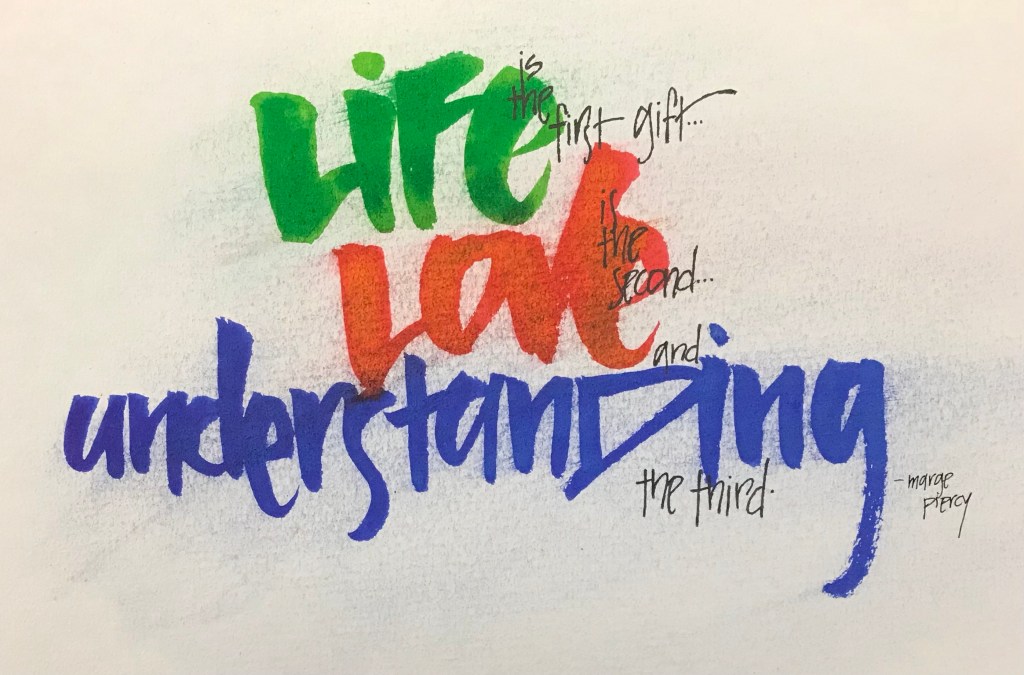 LiFe
is
the
first gift...
Love
is
the
second...
and
understanDing
the third.
- marge
piercy